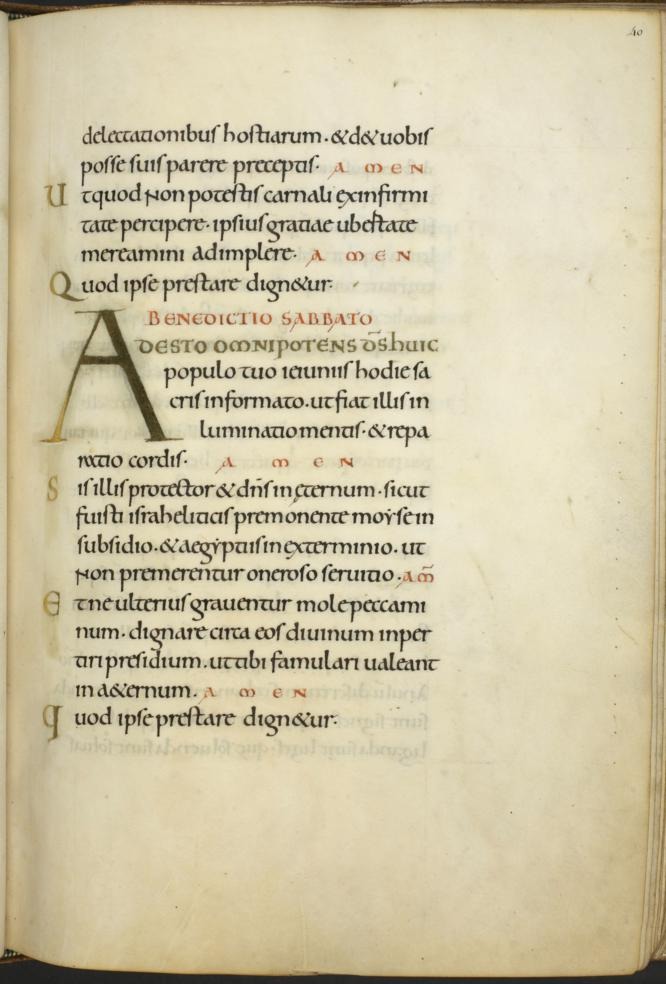 40
delectationibus hostiarum · & d& uobis
posse suis parere preceptis · AMEN
Ut quod non potestis carnali ex infirmi
tate percipere · ipsius gratiae ubertate
mereamini adimplere · AMEN
Quod ipse prestare dign&ur ·
BENEDICTIO SABBATO
ADESTO OMNIPOTENS DS̄ huic
populo tuo ieiuniis hodie sa
cris informato . ut fiat illis in
luminatio mentis · & repa
ratio cordis · AMEN
Sis illis protector & dn̄s in ęternum · sicut
fuisti israheliticis premonente moẏse in
subsidio · & aegẏptiis in exterminio . ut
non premerentur oneroso seruitio · AM̄
Et ne ulterius grauentur mole peccami
num · dignare circa eos diuinum inper
tiri presidium . ut tibi famulari ualeant
in a&ernum . AMEN
quod ipse prestare dign&ur ·